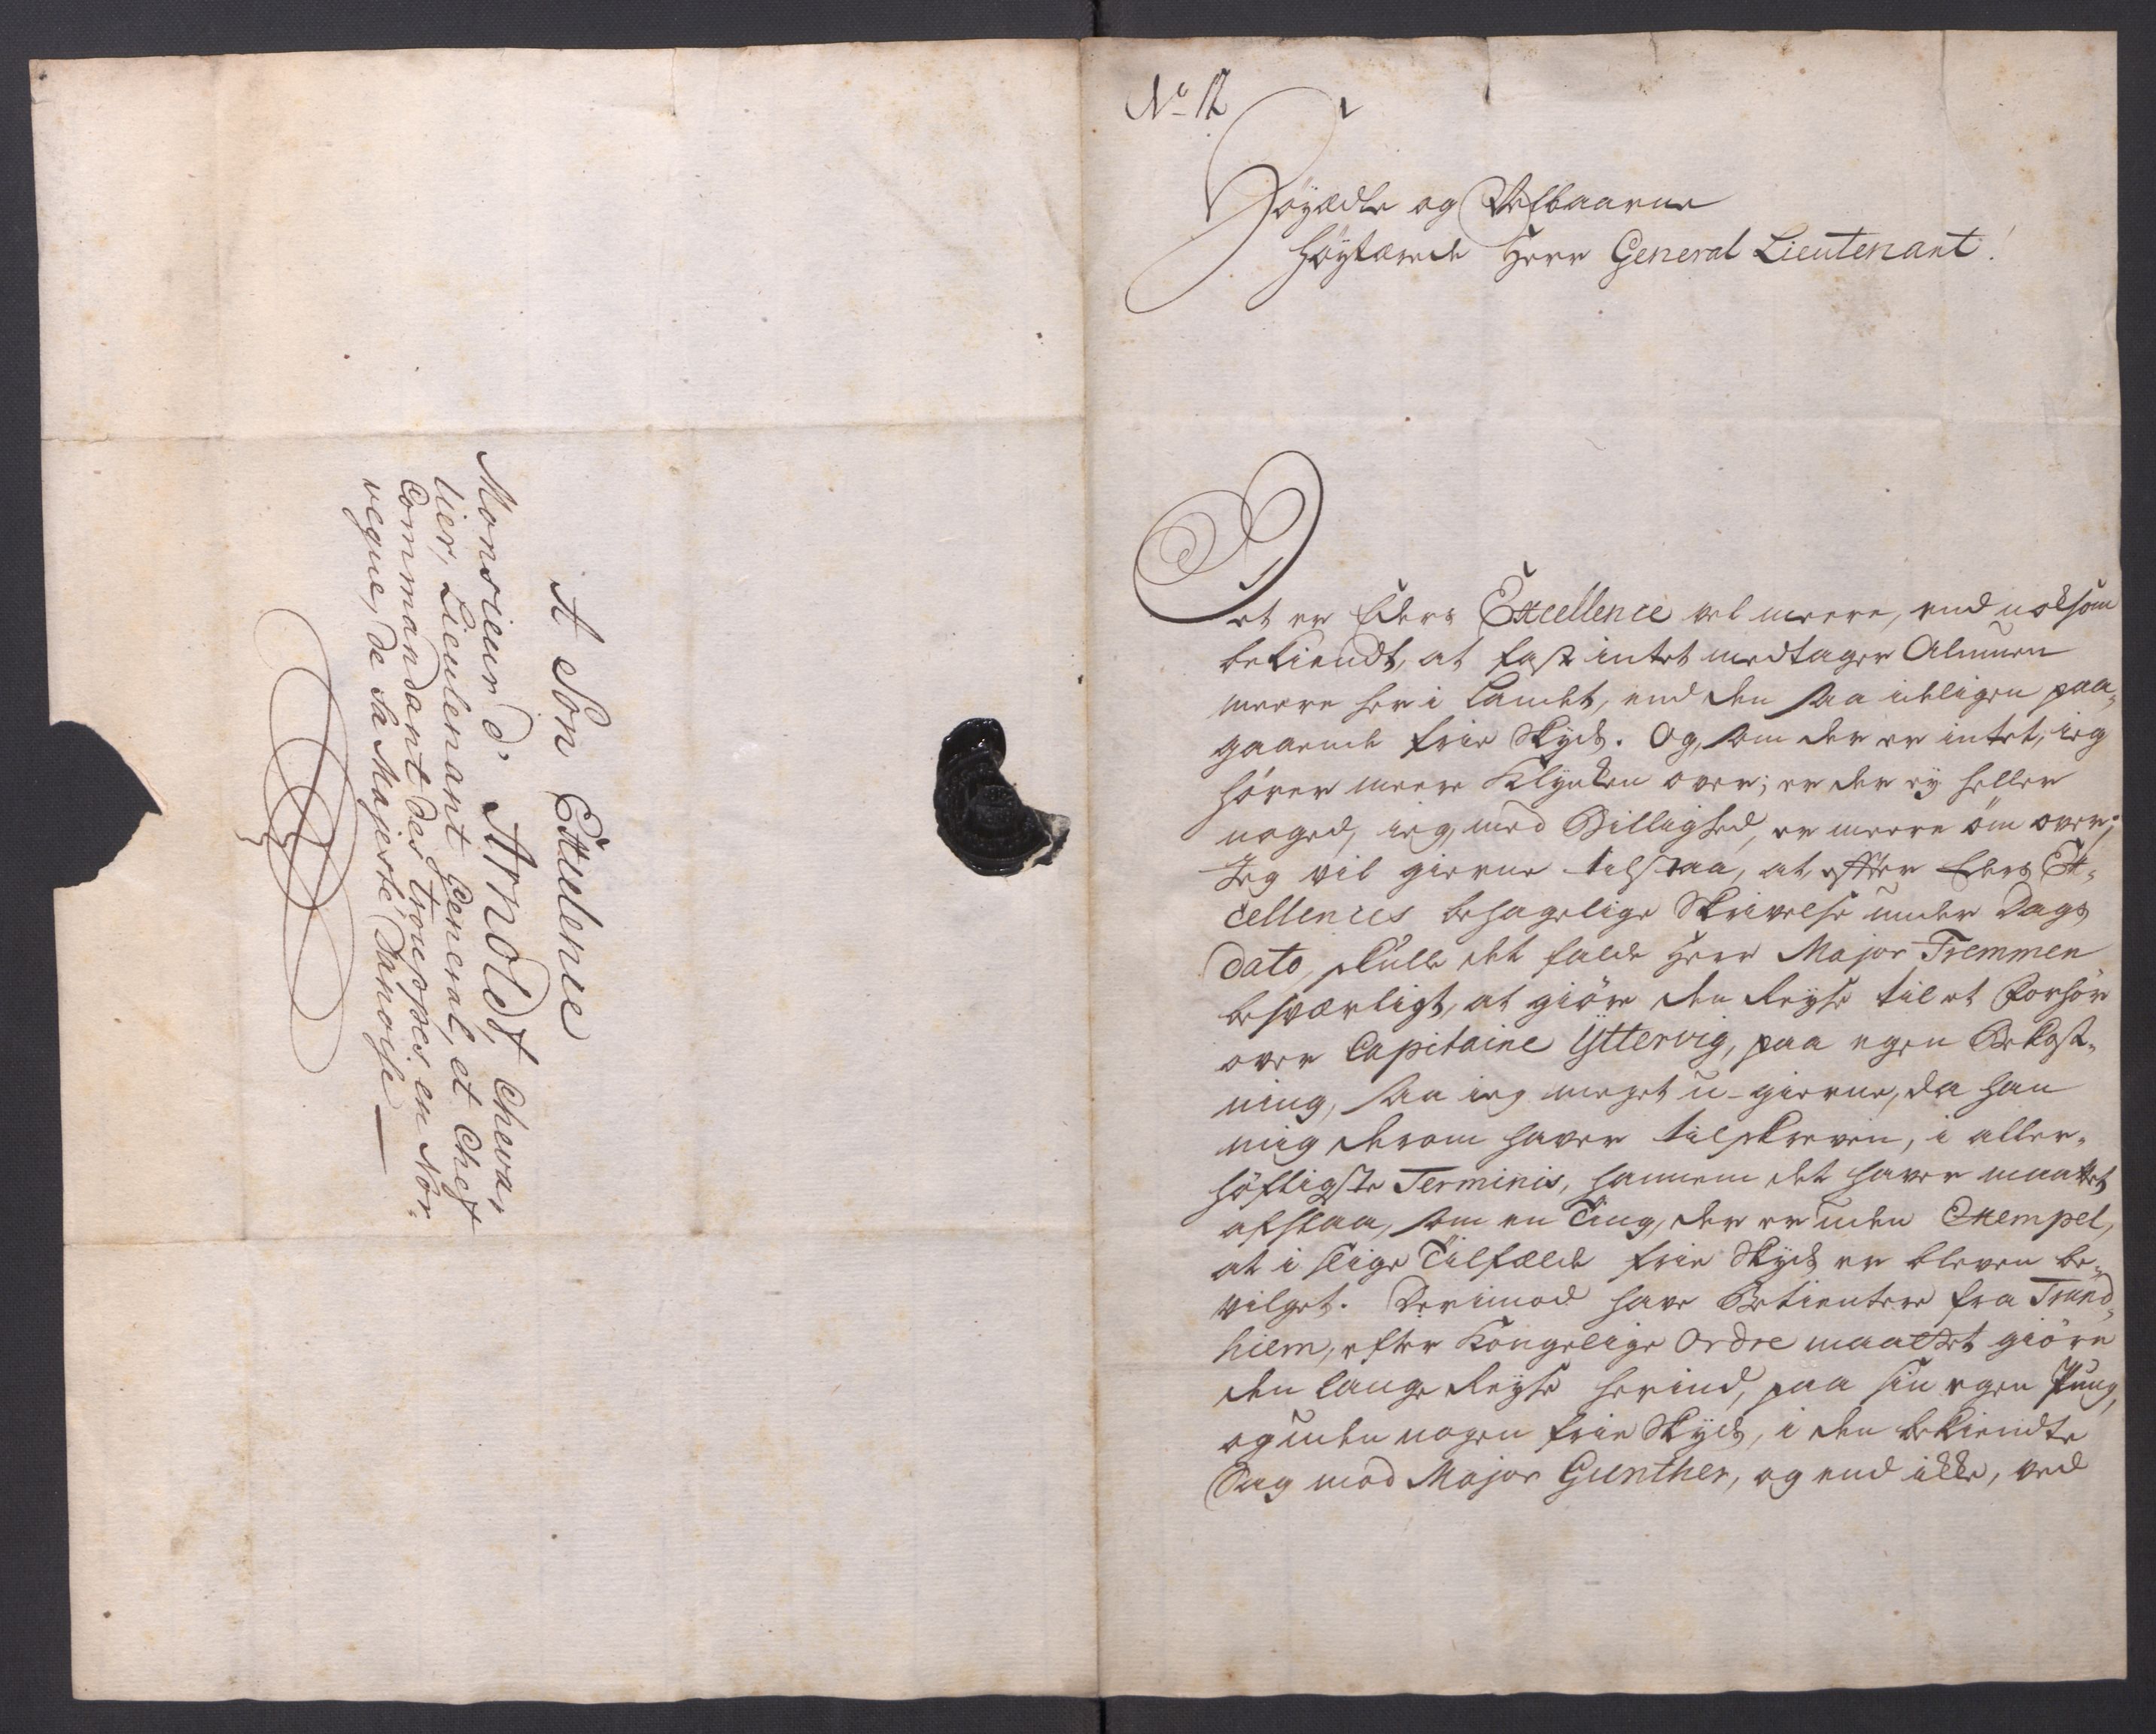 A Son Excelence
Monsieur d'Arnoldt, Cheva,
lier, Lieutenant General, et Chef
Commandant des Trouppes en Nor,
vegue, de Sa Majesté Danoise
No 12
Höyædle og Velbaarne
Höytærede Herr General Lieutenant!
Det er Eders Excellence vel meere, end noksom
bekiendt, at fast intet medtager Almuen
meere her i Landet, end den saa ideligen paa,
gaaende frie Skyds. Og, som der er intet, ieg
hörer meere Klynken over; er der ey heller
noged, ieg, med Billighed, er meere öm over;
Jeg vil gierne tilstaa, at effter Eders Ex,
cellences behagelige Skrivelse under Dags
dato, skulle det falde Herr Major Tremmen
besværligt, at giöre den Reyse til et Forhör
over Capitaine Yttervig, paa egen Bekost,
ning, saa ieg meget u-gierne, da han
mig derom haver tilskreven, i aller,
höfligste Terminis, hannem det haver maattet
afslaa, som en Ting, der er uden Exempel,
at i slige Tilfælde frie Skyds er bleven be,
vilget. Derimod have Betientere fra Trund,
hiem, efter Kongelige Ordre maattet giöre
den lange Reyse herind, paa sin egen Pung,
og uden nogen frie Skyds, i den bekiendte
Sag mod Major Gunther, og end ikke, ved